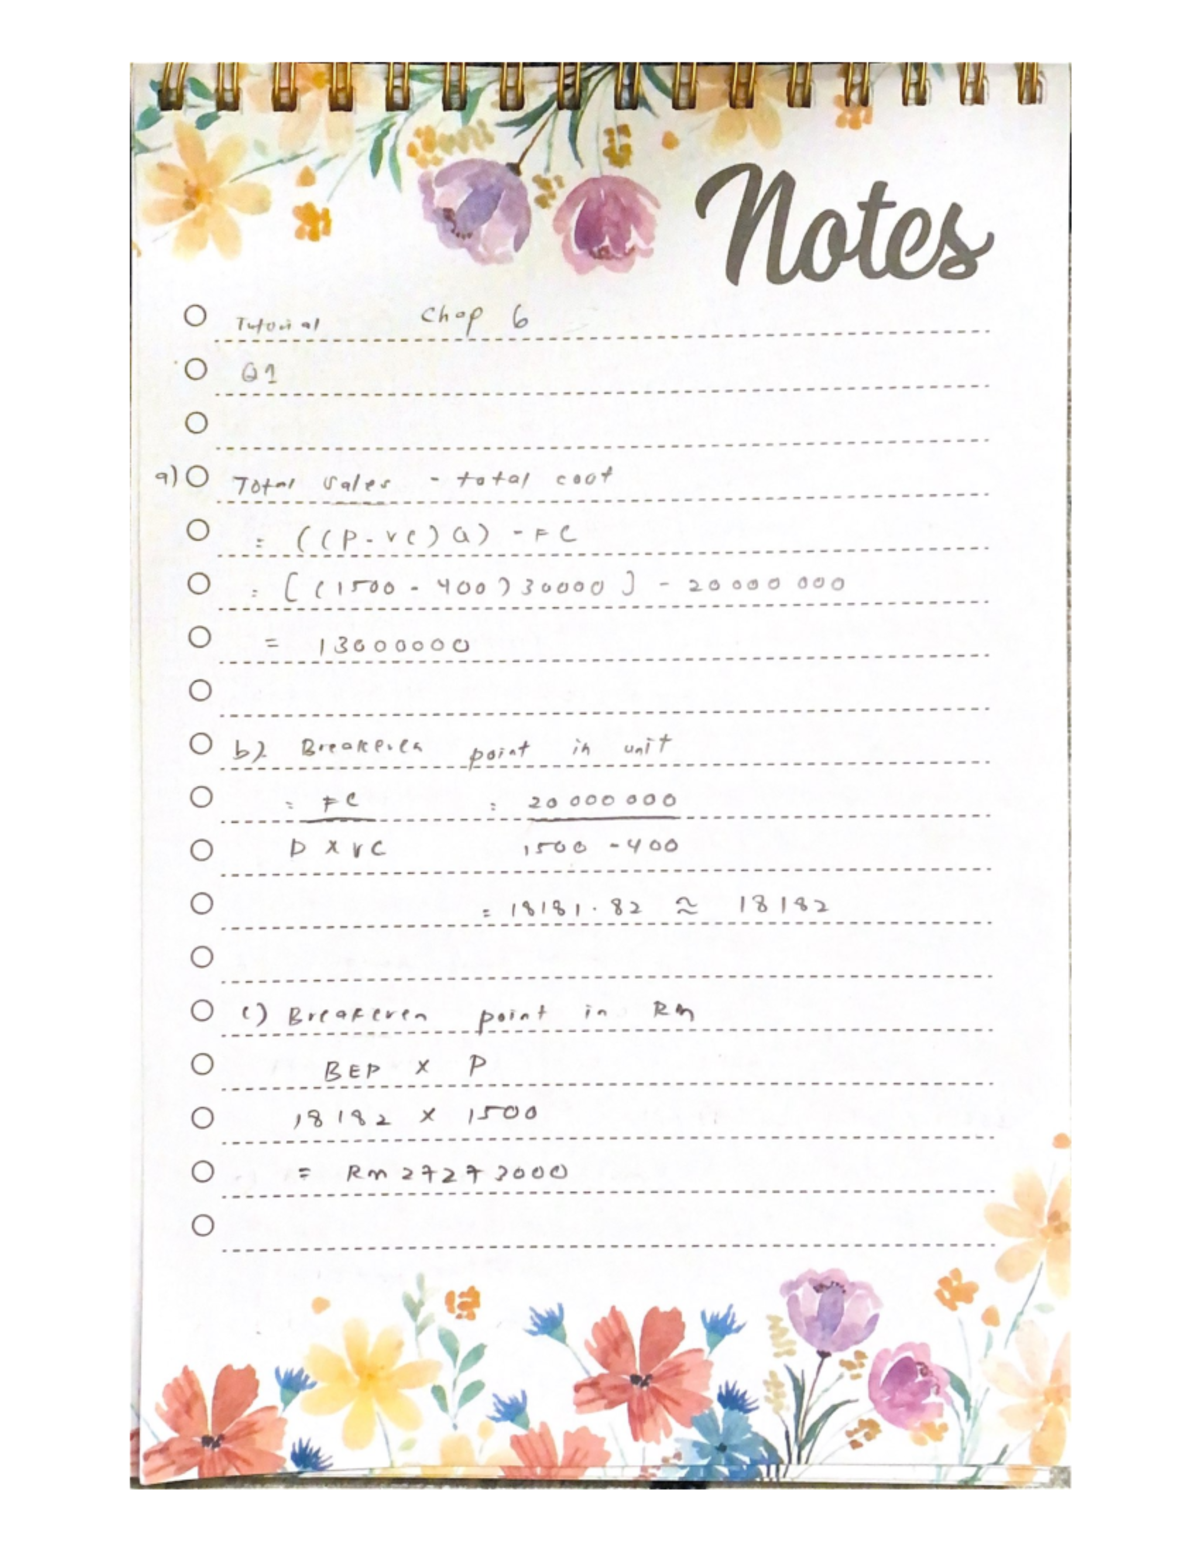 Notes
Tutorial Chap 6
Q1
a) Total sales - total cost
= ((P - VC) Q) - FC
= [ (1500 - 400) 30000 ] - 20 000 000
= 13000000
b) Breakeven point in unit
= FC = 20 000 000
P x VC 1500 - 400
= 18181.82 ≈ 18182
c) Breakeven point in Rm
BEP x P
18182 x 1500
= Rm 27273000